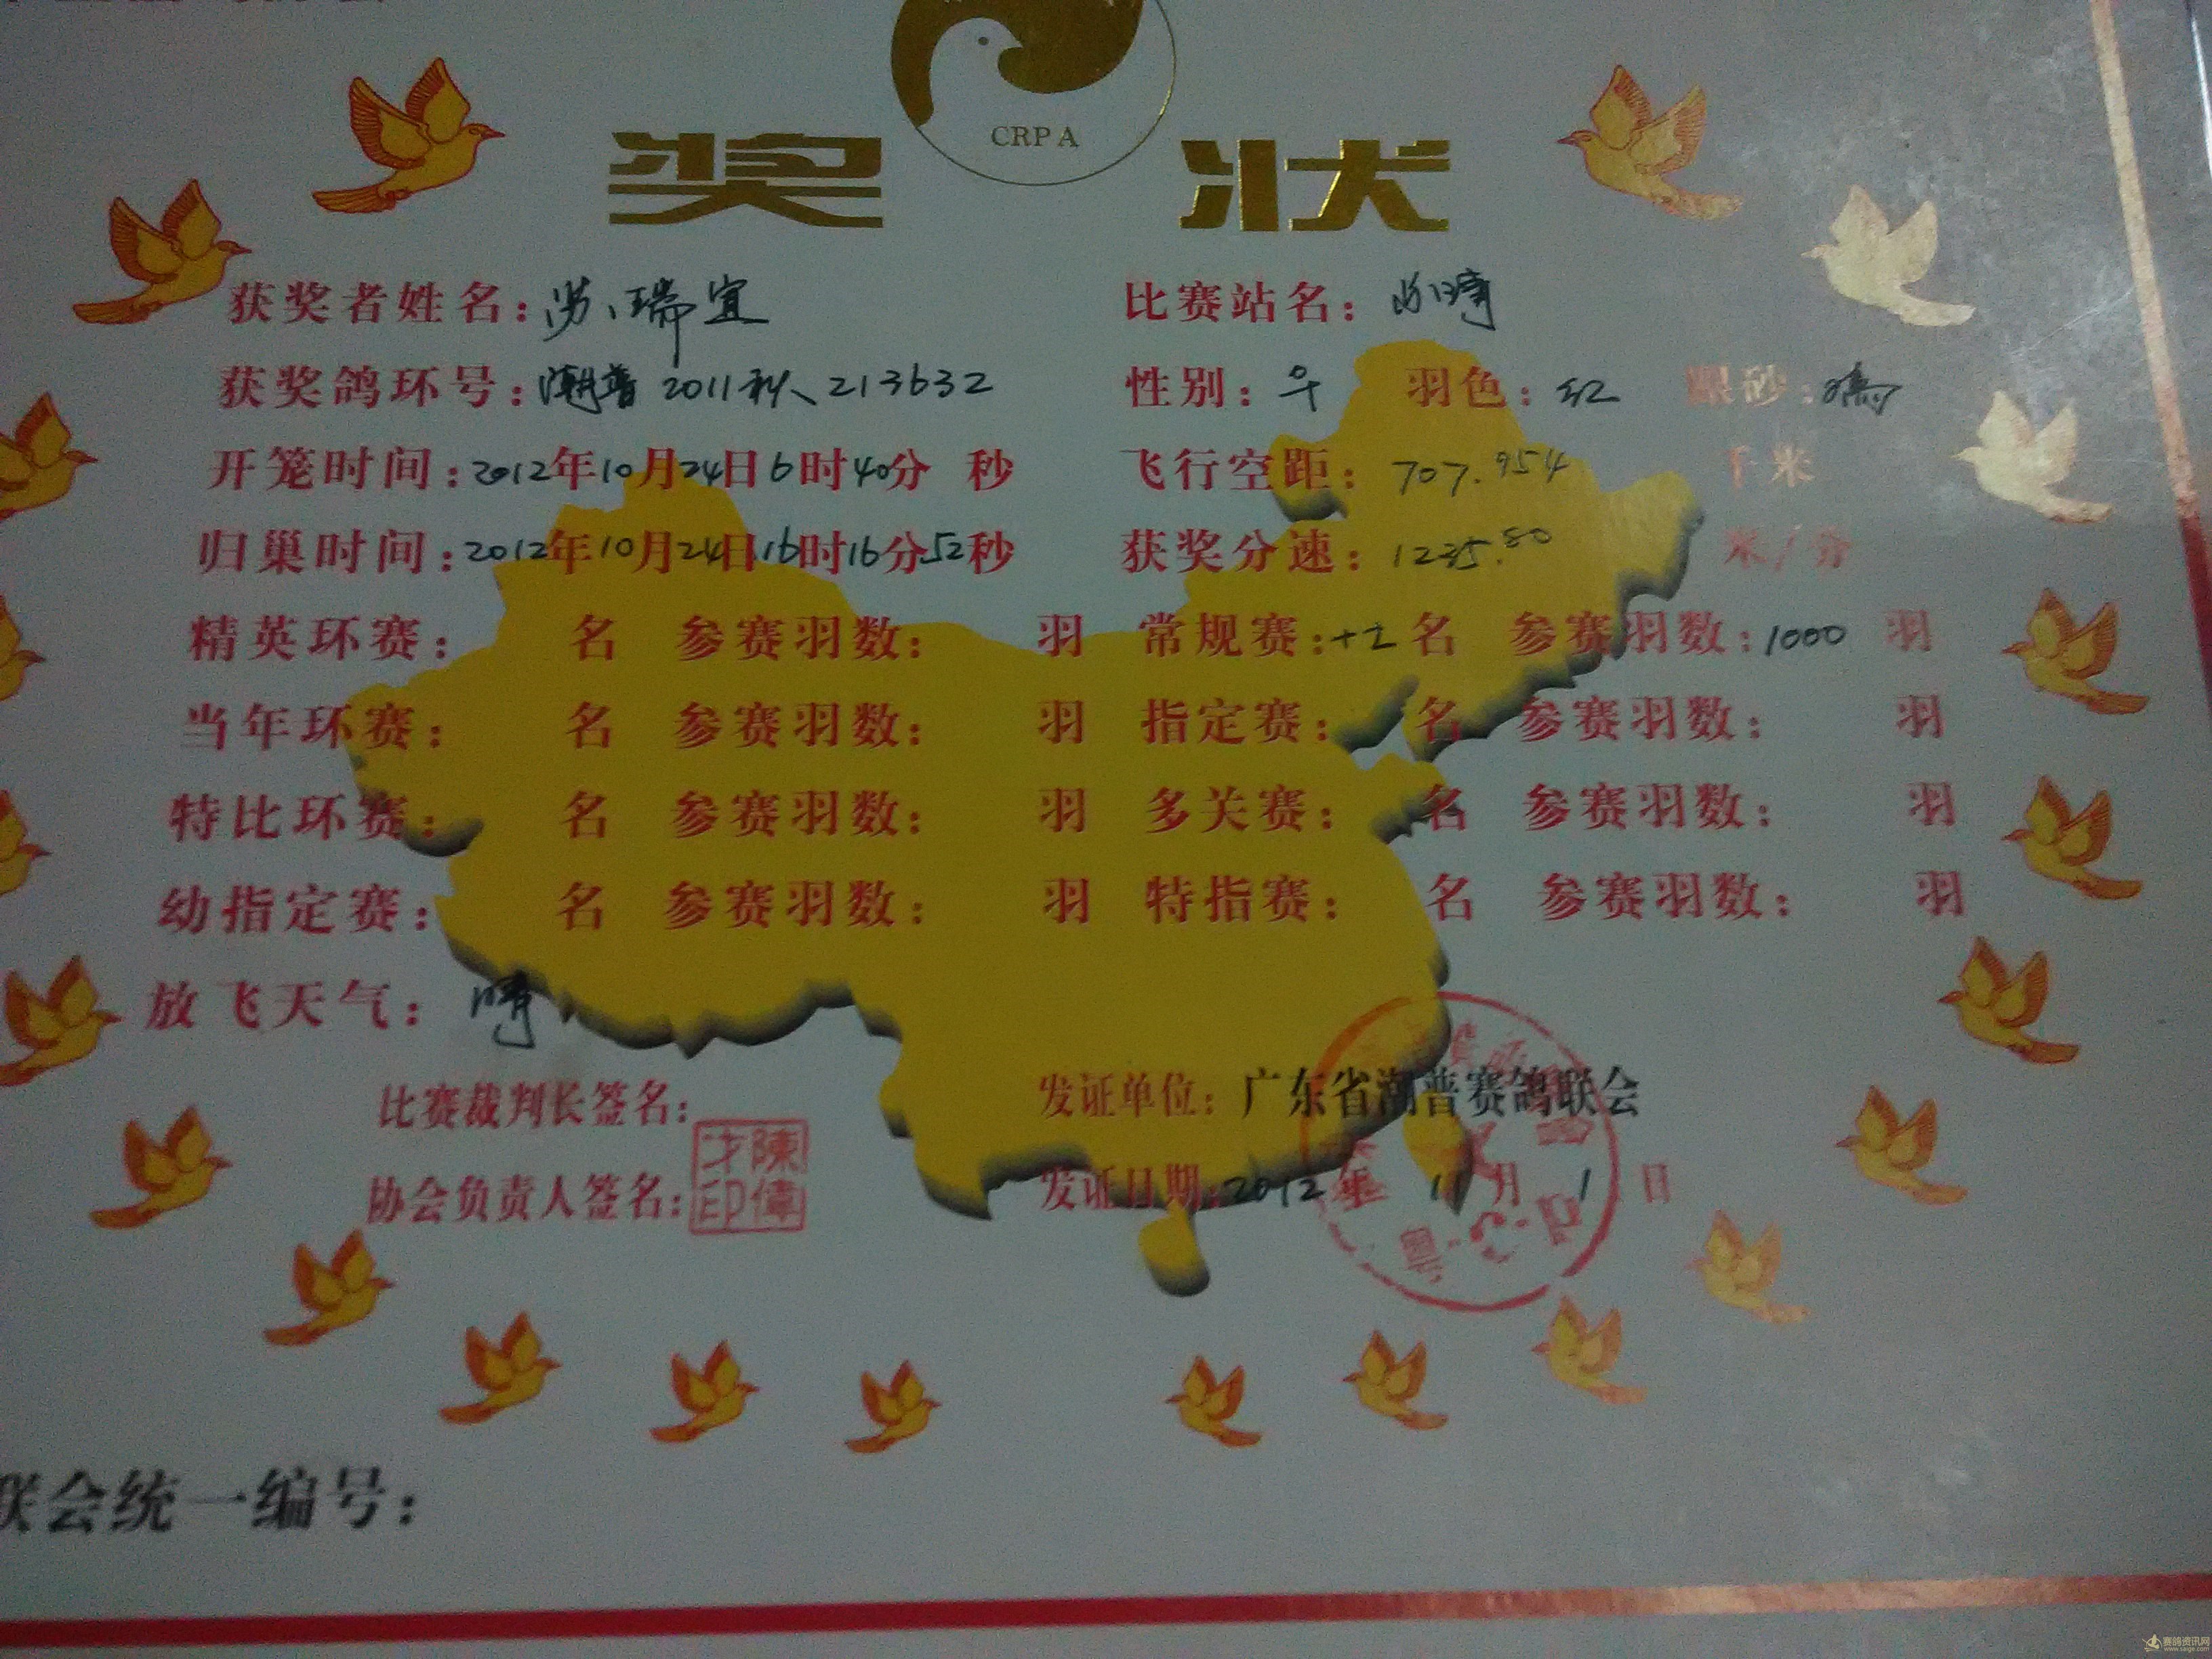 CRPA
奖 状
获奖者姓名：瑞宜 比赛站名：
获奖鸽环号：潮普 2011秋、213632 性别： 羽色：红 眼砂：
开笼时间：2012年10月24日6时40分 秒 飞行空距：707.954 千米
归巢时间：2012年10月24日16时16分52秒 获奖分速：1235.80 米/分
精英环赛： 名 参赛羽数： 羽 常规赛： 名 参赛羽数：1000 羽
当年环赛： 名 参赛羽数： 羽 指定赛： 名 参赛羽数： 羽
特比环赛： 名 参赛羽数： 羽 多关赛： 名 参赛羽数： 羽
幼指定赛： 名 参赛羽数： 羽 特指赛： 名 参赛羽数： 羽
放飞天气：晴
比赛裁判长签名： 发证单位：广东省潮普赛鸽联会
协会负责人签名： 发证日期：2012年 11月 1日
陳偉才印
联会统一编号：
赛鸽资讯网
www.saige.com